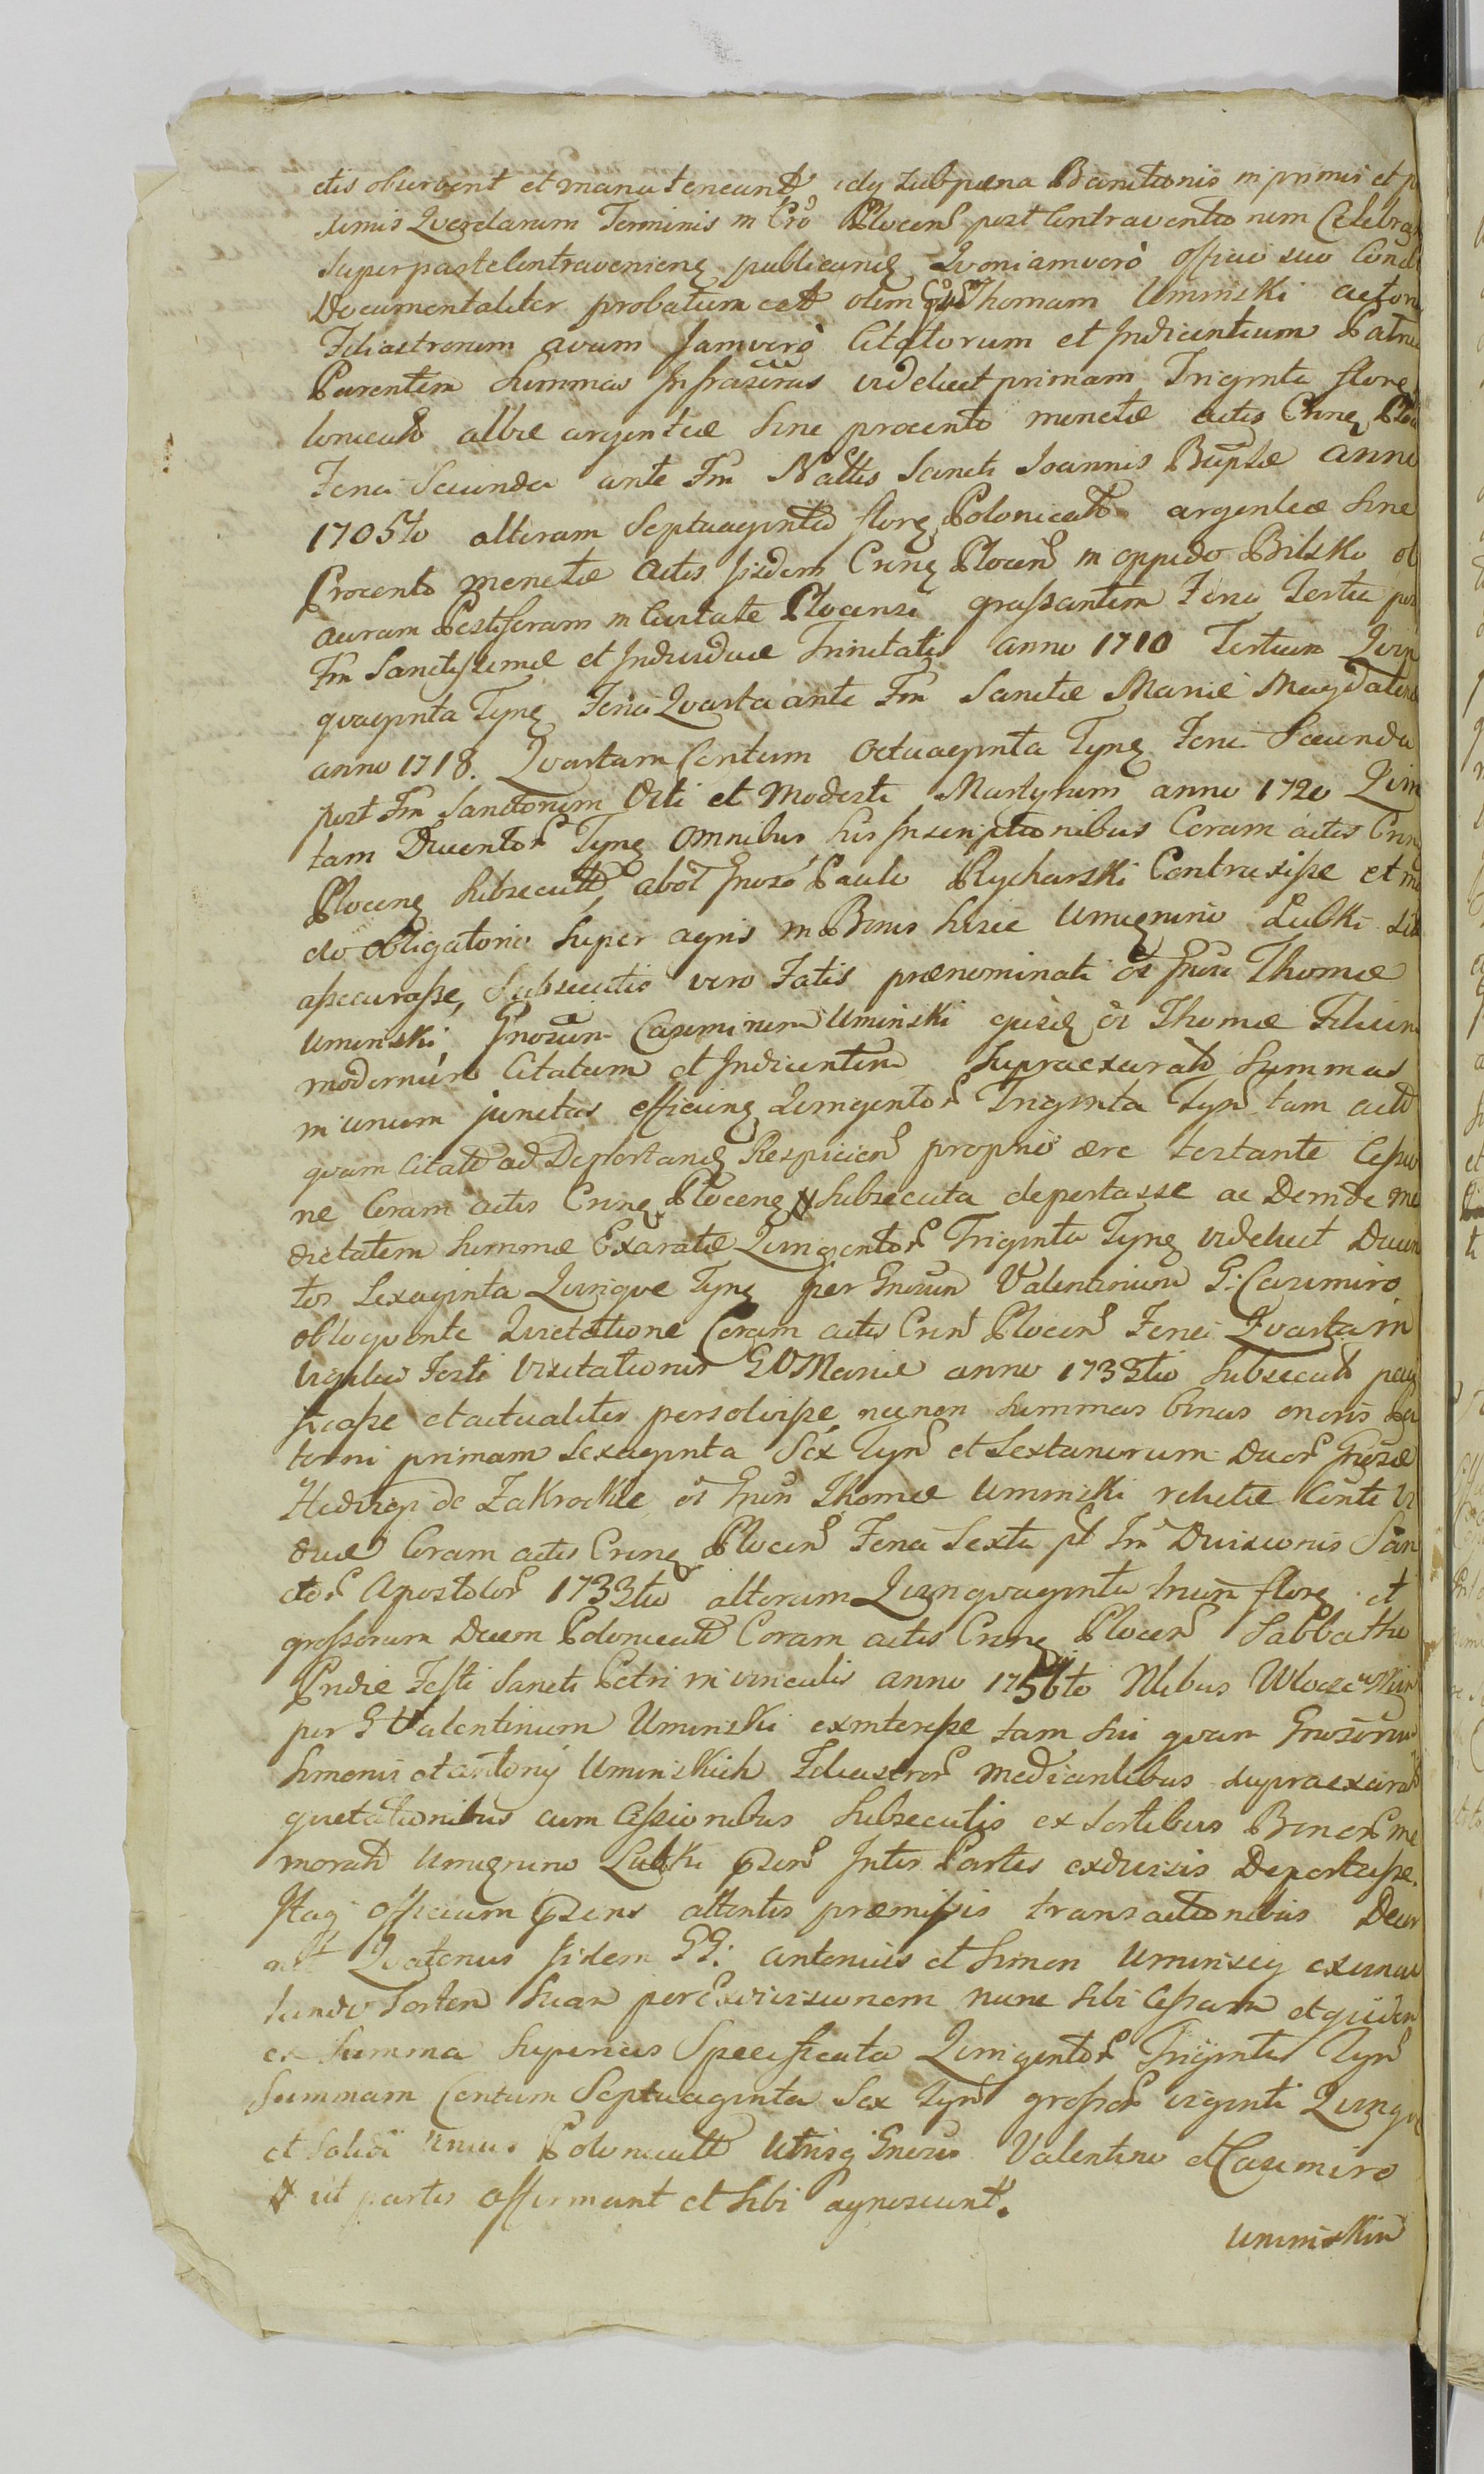 ctis observent et manuteneant, idq sub pœna Bannitionis in primis et p
ximis Qverelarum Terminis in Cro Plocen post Contraventionem Celebra
super parte Contravenienq publicanq Qvoniam verò officio suo Cons
Documentaliter probatum est olim Thomam Uminski actor
Filiastrorum avum Jamverò Citatorum et Indicentium Patru
Parentem Summas Infrascriptas videlicet primam Triginta flore
lonicalb albæ argenteæ sine procento monetæ actis Crinq Plo
Feria Secunda ante Fm Nattis Sancti Joannis Baptæ anno
1705to alteram Septuaginta florq Polonicalb argenteæ sine
Procento monetæ actis iisdem Crinq Plocen in oppido Bilsko ob
auram Pestiferam in Civitate Plocensi grassantem Feria Tertia pos
Fm Sanctissimæ et Individuæ Trinitatis anno 1710 Tertiam Qvin
qvaginta Tynq Feria Qvarta ante Fm Sanctæ Mariæ Magdalenæ
anno 1718. Qvartam Centum Octuaginta Tynq Feria Secunda
post Fm Sanctorum Viti et Modesti Martyrum anno 1720 Qvin
tam Ducentor Tynq omnibus his Inscriptionibus Coram actis Crin
Plocenq Subsecutis, ab ol Gnoso Paulo Rycharski Contraxisse et mo
do obligatorio super agris in Bonis hisce Umienino Lubki si
assecurasse, Subsecutis vero Fatis prænominati ol Gnosi Thomæ
Uminski Gnosum Casimirum Uminski ejusdq ol Thomæ Filium
modernum Citatum et Indicentem supraexarat Summas
in unum junctas efficienq Qvingentor Triginta Tyn tam act
qvam Citat ad Deportanq Respicien proprio ære testante Cessio
ne Coram actis Crinq Plocenq Subsecuta deportasse ac Deinde me
dietatem Summæ Exaratæ Qvingentor Triginta Tynq videlicet Ducen
tos Sexaginta Qvinqve Tynq per Gnosum Valentinum G: Casimiro
obloqvente Qvietatione Coram actis Crin Plocen Feria Qvarta in
Vigilia Festi Visitationis B V Mariæ anno 1733tio Subsecut paci
ficasse et actualiter persolvisse necnon Summas binas oneris pa
terni primam Sexaginta Sex Tyn et Sextanorum duor Gnosæ
Hedvigi de Zakrockie ol Gnosi Thomæ Uminski relictæ Conti Vi
duæ Coram actis Crinq Plocen Feria Sexta pt Fm Divisionis San
ctor Apostolor 1733tio alteram Qvinqvaginta trium florq et
grossorum Duem Polonicalb Coram actis Crinq Plocen Sabbatho
Pridie Festi Sancti Petri in vinculis anno 1756to Nlibus
per G Valentinum Uminski exinteresse tam sui qvam Gnosorum
Simonis et antonij Uminskich Filiastror mediantibus supraexarat
qvietationibus cum Cessionibus Subsecutis ex sortibus Bonor me
morat Umienino Lubki Inter Partes exdivisis Deportasse.
Itaq officium attentis præmissis transactionibus Decer
nit Qvatenus iidem GG: antonius et Simon Uminscy
Sortem Suam per Exdivisionem nunc sibi Cessam et qvidem
ex Summa Superius Specificata Qvingentor Triginta Tyn
Summam Centum Septuaginta Sex Tyn grossor viginti Qvinqve
et Solidi unius Polonicalb Utrisq Gnosis Valentino et Casimiro
ut partes affirmant et sibi agnoscunt.
Uminskim